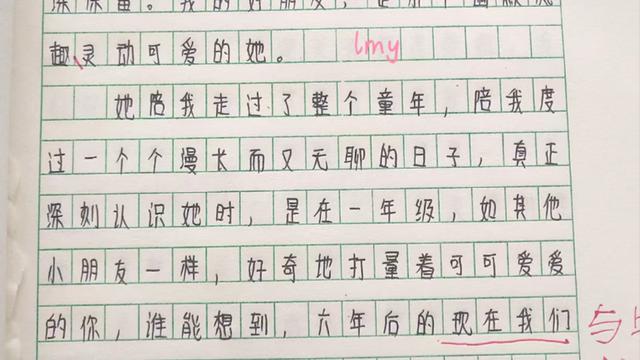 深深留。我的好朋友，是那个幽默风
趣、灵动可爱的她。 lmy
她陪我走过了整个童年，陪我度
过一个个漫长而又无聊的日子，真正
深刻认识她时，是在一年级，如其他
小朋友一样，好奇地打量着可可爱爱
的你，谁能想到，六年后的现在我们
与